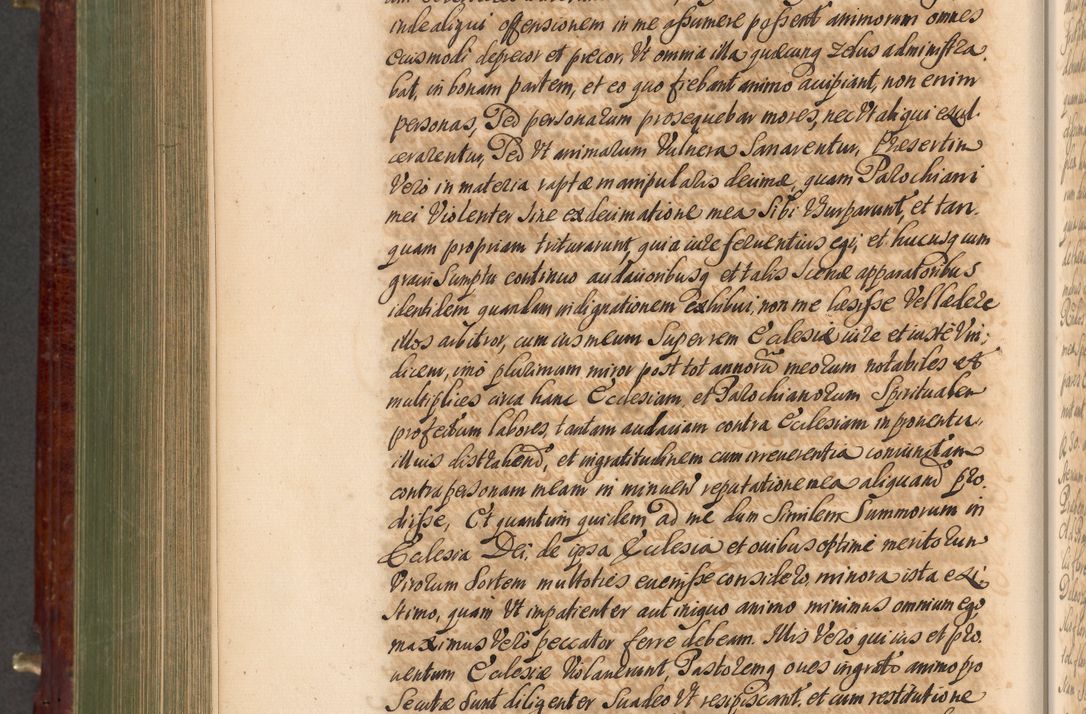 inde aliqui offensionem in me assumere possent animorum omnes
eiusmodi deprecor et precor, Vt omnia illa quæcunq zelus administra,
bat, in bonam partem, et eo quo fiebant animo accipiant, non enim
personas, Sed personarum prosequebar mores, nec Vt aliqui exul
cerarentur, Sed Vt animarum Vulnera Sanarentur, Præsertim
Vero in materia raptæ manipularis decimæ, quam Parochiani
mei Violenter sine exdecimatione mea Sibi Vsurparunt, et tan,
quam propriam triturarunt, quia iure feruentius egi, et hucusq cum
graui Sumptu continuo audacioribusq et talis scenæ apparatoribus
identidem quandam indignationem exhibui, non me læsisse Vel lædere
illos arbitror, cum ius meum Super rem Ecclesiæ iure et iuste Vin,
dicem, imo plurimum miror post tot annorū meorum notabiles et
multiplices circa hanc Ecclesiam, et Parochianorum Spiritualem
profectum labores, tantam audaciam contra Ecclesiam in ponentu,
illius distrahend, et ingratitudinem cum irreuerentia coniunctam
contra personam meam in minuen reputatione mea aliquand pro,
disse, Et quantum quidem ad me dum Similem Summorum in
Ecclesia Dei, de ipsa Ecclesia et ouibus optime meritorum
Virorum Sortem multoties euenisse considero, minora ista exi,
stimo, quam Vt impatienter aut iniquo animo minimus omnium ego
maximus Vero peccator ferre debeam. Illis Vero qui ius et pro
uentum Ecclesiæ Violauerunt, Pastoremq oues ingrato animo pro
Secutæ Sunt diligenter Suadeo Vt resipiscant, et cum restitutione